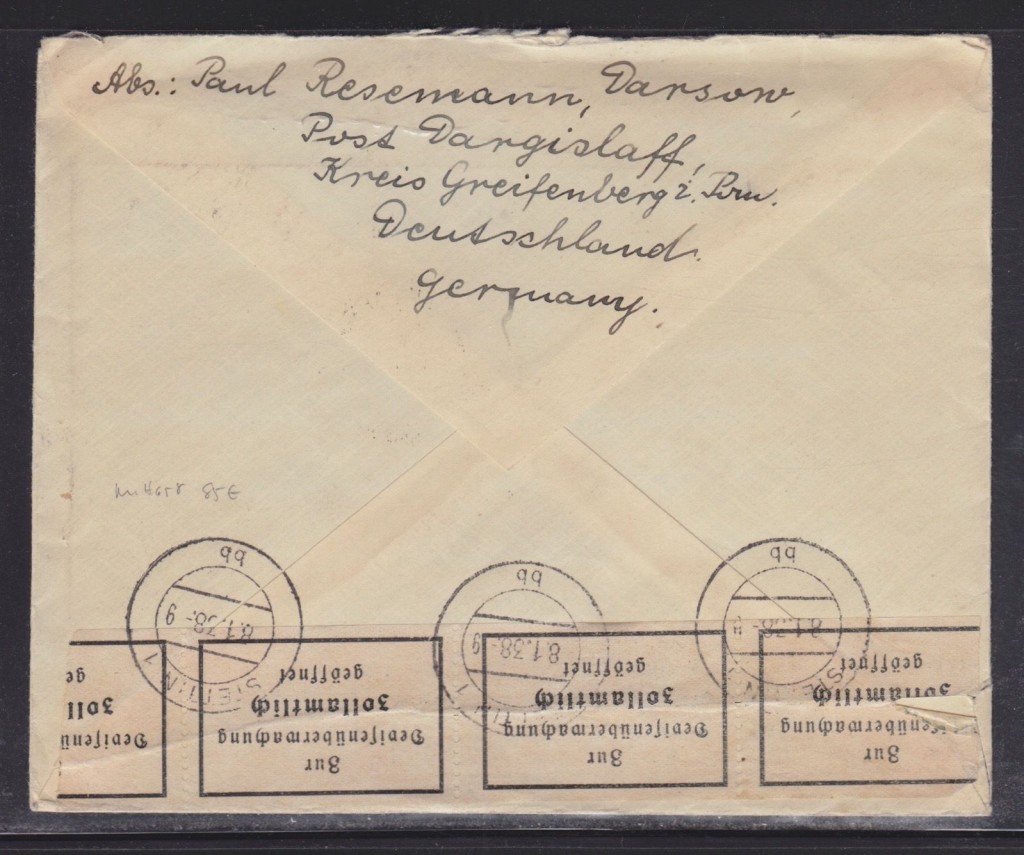 Abs.: Paul Resemann, Darsow,
Post Dargislaff,
Kreis Greifenberg i. Pom.
Deutschland.
Germany.
85 €
STETTIN 1
8.1.38.-9
bb
STETTIN 1
8.1.38-9
bb
STETTIN 1
8.1.38-9
bb
Zur
Devisenüberwachung
zollamtlich
geöffnet
Zur
Devisenüberwachung
zollamtlich
geöffnet
Zur
isenüberwachung
zollamtlich
geöffnet
Devisenü
zoll
ge